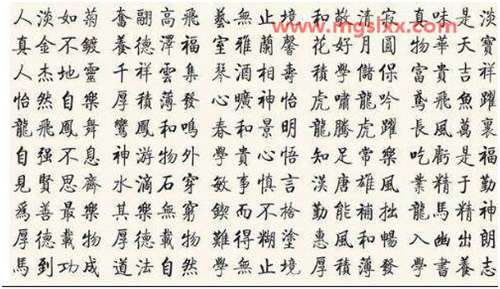 www.mgslxx.com
人淡如菊 奮翮高飛 藝無止境 和敬清寂 真味是淡
真金不鍍 養德澤福 室雅蘭馨 花好月圓 物華天寶
人杰地靈 千祥雲集 琴酒相壽 學儲保 富貴吉祥
怡然自樂 厚積薄發 心曠神怡 虎嘯龍吟 鳶飛魚躍
龍飛鳳舞 鸞鳳和鳴 春和景明 龍騰虎躍 長風萬裏
自强不息 神游物外 學貴心悟 知足常樂 吃虧是福
見賢思齊 水滴石穿 敏事慎言 漢唐雄風 業精于勤
爲善最樂 其樂無窮 鍥而不捨 勤能補拙 龍馬精神
厚德載物 厚德載物 難得糊塗 惠風和暢 入幽出朗
馬到功成 道法自然 學無止境 厚積薄發 學書養志